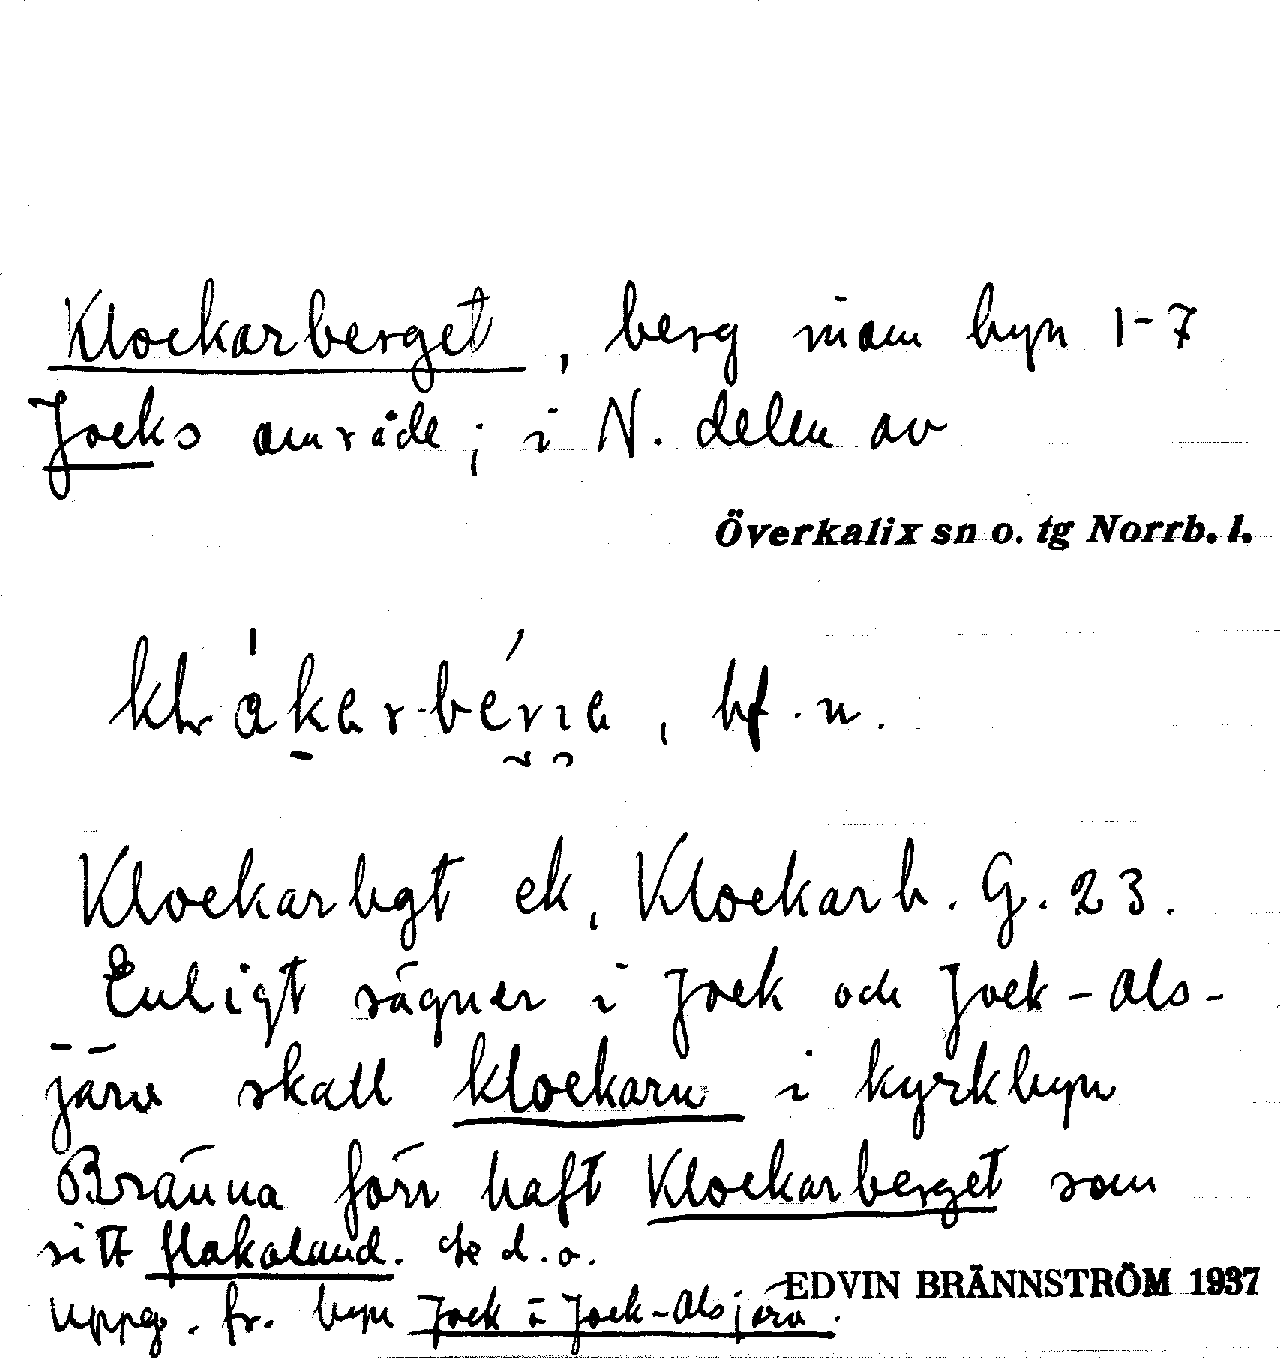 Klockarberget, berg inom byn 1-7
Jocks område; i N. delen av
Överkalix sn o. tg Norrb. l.
bf. n.
Klockarbgt ek, Klockarb. G. 23.
Enligt sägner i Jock och Jock-Als-
järv skall klockarn i kyrkbyn
Bränna förr haft Klockarberget som
sitt flakaland. Se d. o.
Uppg. fr. byn Jock o Jock-Alsjärv.
EDVIN BRÄNNSTRÖM 1937